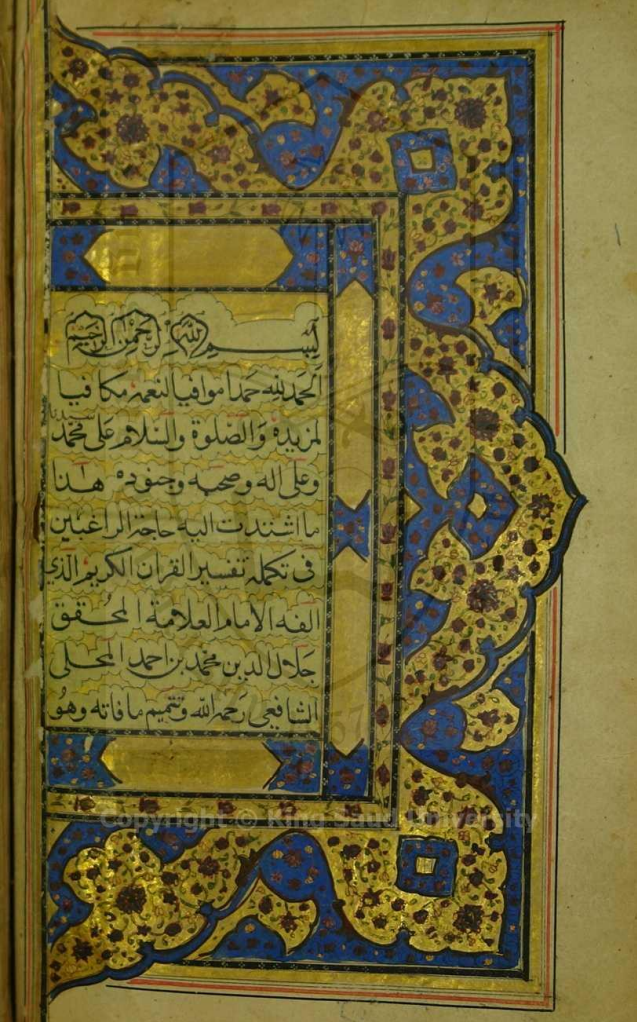 بسم الله الرحمن الرحيم
الحمد لله حمدا موافيا لنعمه مكافيا
لمزيده والصلوة والسلام على محمد
وعلى اله وصحبه وجنوده هذا
ما اشتدت اليه حاجة الراغبين
فى تكملة تفسير القران الكريم الذى
الفه الامام العلامة المحقق
جلال الدين محمد بن احمد المحلى
الشافعى رحمه الله وتتميم ما فاته وهو
Copyright © King Saud University